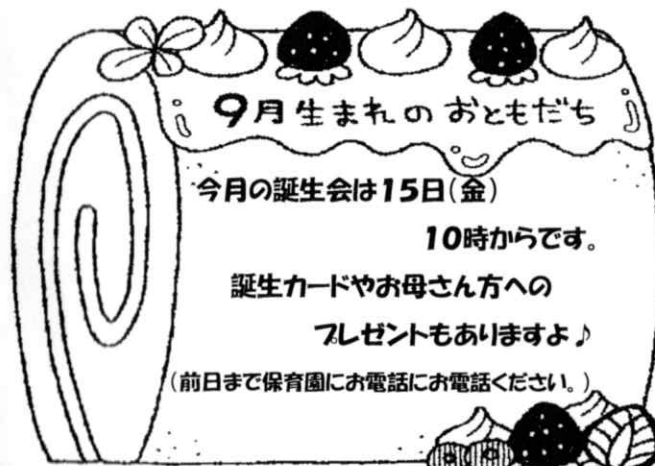 9月生まれのおともだち
今月の誕生会は15日(金)
10時からです。
誕生カードやお母さん方への
プレゼントもありますよ♪
(前日まで保育園にお電話にお電話ください。)